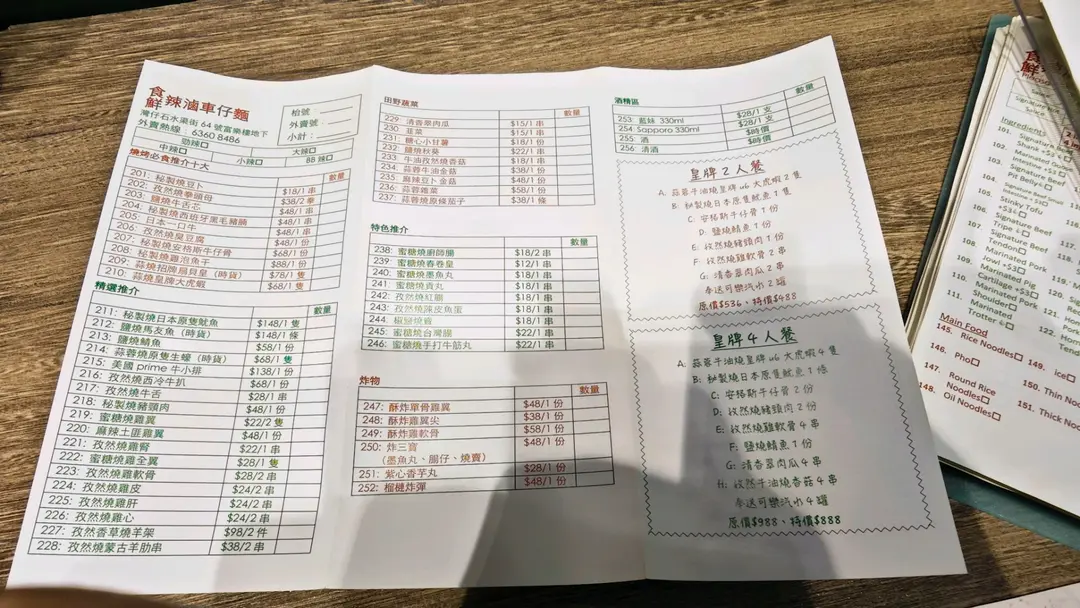 食鮮辣滷車仔麵
灣仔石水渠街 64 號富樂樓地下
外賣熱線：6360 8486
枱號：
外賣號：
小計：
勁辣口 大辣口
中辣口 小辣口 BB 辣口
燒烤必食推介十大 數量
201: 秘製燒豆卜 $18/1 串
202: 孜然燒拳頭母 $38/2 拳
203: 鹽燒牛舌芯 $48/1 串
204: 秘製燒西班牙黑毛豬腩 $48/1 串
205: 日本一口牛 $48/1 串
206: 孜然燒臭豆腐 $48/1 份
207: 秘製燒安格斯牛仔骨 $68/1 份
208: 秘製燒雞泡魚干 $88/1 份
209: 蒜燒招牌扇貝皇（時貨） $78/1 隻
210: 蒜燒皇牌大虎蝦 $68/1 隻
精選推介 數量
211: 秘製燒日本原隻魷魚 $148/1 隻
212: 鹽燒馬友魚（時貨） $148/1 條
213: 鹽燒鯖魚 $58/1 份
214: 蒜蓉燒原隻生蠔（時貨） $68/1 隻
215: 美國 prime 牛小排 $138/1 份
216: 孜然燒西冷牛扒 $68/1 份
217: 孜然燒牛舌 $28/1 串
218: 秘製燒豬頸肉 $48/1 份
219: 蜜糖燒雞翼 $22/2 隻
220: 麻辣土匪雞翼 $48/1 份
221: 孜然燒雞腎 $22/1 串
222: 蜜糖燒雞全翼 $28/1 隻
223: 孜然燒雞軟骨 $28/2 串
224: 孜然燒雞皮 $24/2 串
225: 孜然燒雞肝 $24/2 串
226: 孜然燒雞心 $24/2 串
227: 孜然香草燒羊架 $98/2 件
228: 孜然燒蒙古羊肋串 $38/2 串
田野蔬菜 數量
229: 清香翠肉瓜 $15/1 串
230: 韮菜 $15/1 串
231: 糖心小甘薯 $18/1 份
232: 鹽燒秋葵 $22/1 串
233: 牛油孜然燒香菇 $38/1 份
234: 蒜蓉牛油金菇 $38/1 份
235: 麻辣豆卜金菇 $48/1 份
236: 蒜蓉雜菜 $58/1 份
237: 蒜蓉燒原條茄子 $38/1 條
特色推介 數量
238: 蜜糖燒廚師腸 $18/2 串
239: 蜜糖燒春卷皇 $12/1 串
240: 蜜糖燒墨魚丸 $18/1 串
241: 蜜糖燒貢丸 $18/1 串
242: 孜然燒紅腸 $18/1 串
243: 孜然燒陳皮魚蛋 $18/1 串
244: 椒鹽燒賣 $18/1 串
245: 蜜糖燒台灣腸 $22/1 串
246: 蜜糖燒手打牛筋丸 $22/1 串
炸物 數量
247: 酥炸單骨雞翼 $48/1 份
248: 酥炸雞翼尖 $38/1 份
249: 酥炸雞軟骨 $58/1 份
250: 炸三寶 $48/1 份
（墨魚丸、腸仔、燒賣）
251: 紫心香芋丸 $28/1 份
252: 榴槤炸彈 $48/1 份
酒精區 數量
253: 藍妹 330ml $28/1 支
254: Sapporo 330ml $28/1 支
255: 酒 $時價
256: 清酒 $時價
皇牌 2 人餐
A: 蒜蓉牛油燒皇牌 u6 大虎蝦 2 隻
B: 秘製燒日本原隻魷魚 1 隻
C: 安格斯牛仔骨 1 份
D: 鹽燒鯖魚 1 份
E: 孜然燒豬頸肉 1 份
F: 孜然燒雞軟骨 2 串
G: 清香翠肉瓜 2 串
多送可樂汽水 2 罐
原價$536、特價$488
皇牌 4 人餐
A: 蒜蓉牛油燒皇牌 u6 大虎蝦 4 隻
B: 秘製燒日本原隻魷魚 1 條
C: 安格斯牛仔骨 2 份
D: 孜然燒豬頸肉 2 份
E: 孜然燒雞軟骨 4 串
F: 鹽燒鯖魚 1 份
G: 清香翠肉瓜 4 串
H: 孜然牛油燒香菇 4 串
多送可樂汽水 4 罐
原價$988、特價$888
食鮮
Signature
Ingredients
101. Signature Shank +$3
102. Signature Beef Intestine +$3
103. Signature Pit Belly
104. Signature Beef Small Intestine +$3
105. Stinky Tofu +$3
106. Signature Beef Tripe
107. Signature Beef Tendon
108. Marinated Pork Jowl +$3
109. Marinated Pig Cartilage +$3
110. Marinated Pork Shoulder
111. Marinated Trotter
Main Food
145. Rice Noodles
146. Pho
147. Round Rice Noodles
148. Oil Noodles
149. ice
150. Thin Noo
151. Thick Noo